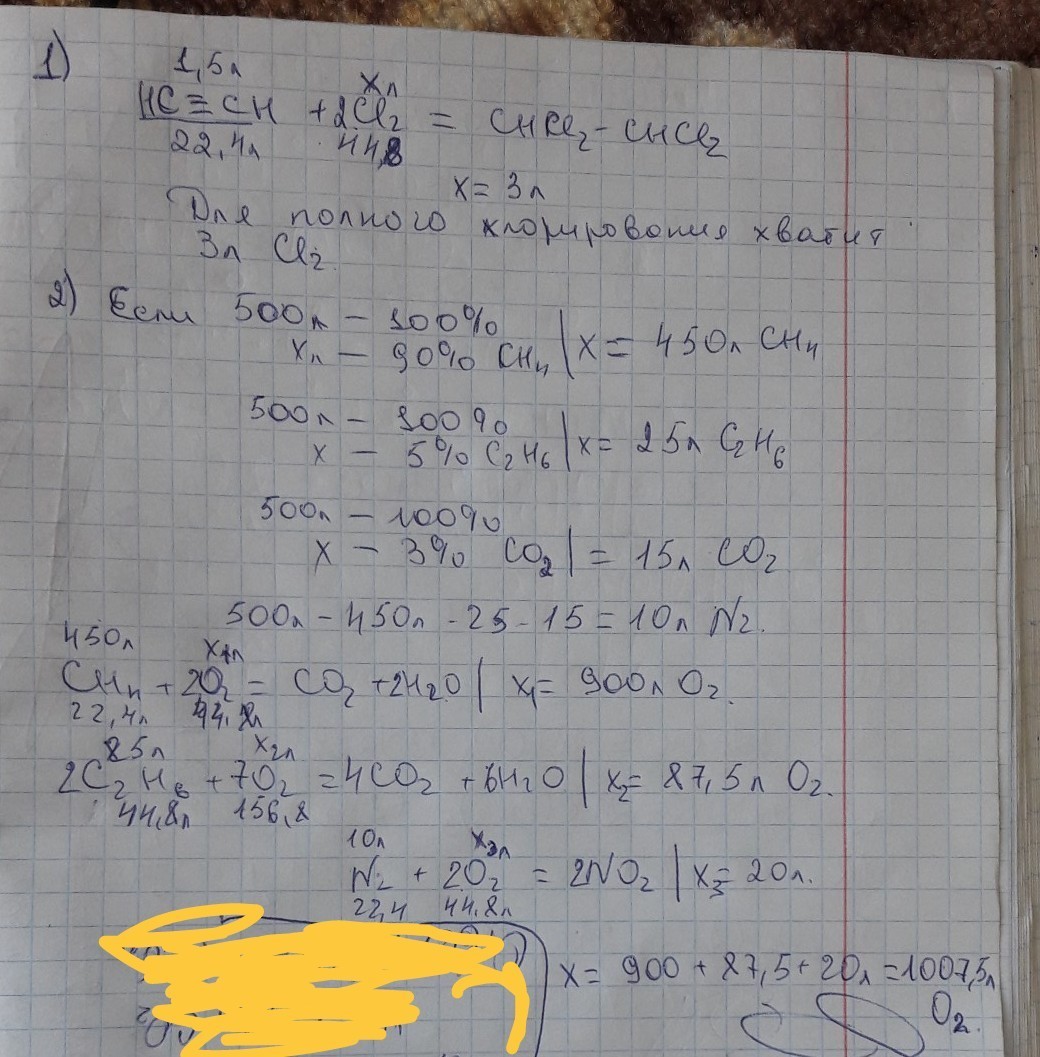 1)
1,5л xл
HC≡CH + 2Cl₂ = CHCl₂-CHCl₂
22,4л 44,8
x = 3л
Для полного хлорирования хватит
3л Cl₂.
2) Если 500л - 100%
xл - 90% CH₄ | x = 450л CH₄
500л - 100%
x - 5% C₂H₆ | x = 25л C₂H₆
500л - 100%
x - 3% CO₂ | = 15л CO₂
500л - 450л - 25 - 15 = 10л N₂.
450л x₁л
CH₄ + 2O₂ = CO₂ + 2H₂O | x₁ = 900л O₂.
22,4л 44,8л
25л x₂л
2C₂H₆ + 7O₂ = 4CO₂ + 6H₂O | x₂ = 87,5л O₂.
44,8л 156,8
10л x₃л
N₂ + 2O₂ = 2NO₂ | x₃ = 20л.
22,4 44,8л
x = 900 + 87,5 + 20л = 1007,5л
O₂.